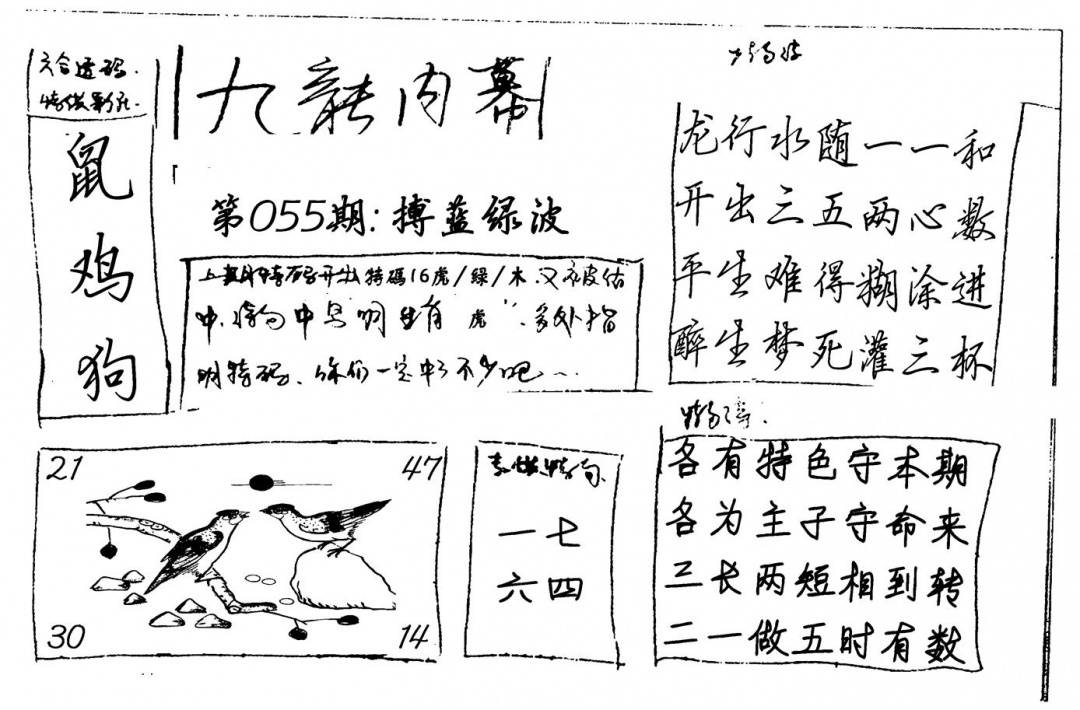 六合透码
鼠
鸡
狗
九龍内幕
第055期:搏蓝绿波
上期特码开出特碼16虎/綠/木.又被估
中.中 有虎".多处指
明特码、你们一定中了不少吧~
龙行水随一一和
开出三五两心数
平生难得糊涂进
醉生梦死灌三杯
21
47
30
14
一七
六四
各有特色守本期
各为主子守命来
三长两短相到转
二一做五时有数